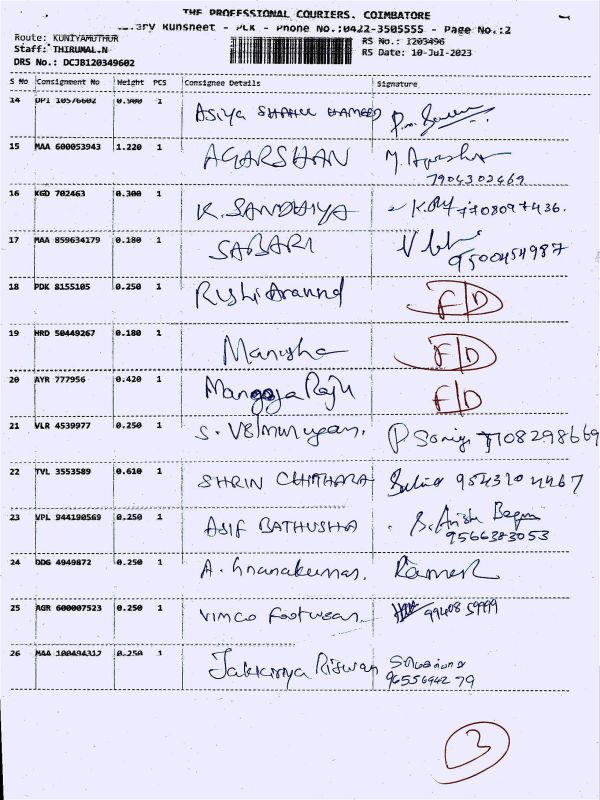 THE PROFESSIONAL COURIERS. COIMBATORE
Runsheet - PLK - Phone No.:0422-3505555 - Page No.:2
Route: KUNIYAMUTHUR
RS No.: 1203496
Staff: THIRUMAL.N
RS Date: 10-Jul-2023
DRS No.: DCJB120349602
S No Consignment No Weight PCS Consignee Details Signature
14 DPI 10576602 0.900 1 Asiya SHAHUL HAMEED
15 MAA 600053943 1.220 1 AGARSHAN
7904302469
16 KGD 702463 0.300 1 K.SANDHIYA 7708097436.
17 MAA 859634179 0.180 1 SABARI
9500454987
18 PDK 8155105 0.250 1 Rushi Aravind F/D
19 HRD 50449267 0.180 1 Manisha F/D
20 AYR 777956 0.420 1 Mangoja Raju F/D
21 VLR 4539977 0.250 1 S. Velmurugan. 7708298669
22 TVL 3553589 0.610 1 SHRIN CHITHARA
23 VPL 944190569 0.250 1 ASIF BATHUSHA S. Anish Begum
9566383053
24 DDG 4949872 0.250 1 A. Gnanakumar. Ramesh
25 AGR 600007523 0.250 1 Vimco Footwear.
26 MAA 100494317 0.250 1 Jakkiriya Riswan
9655694279
3